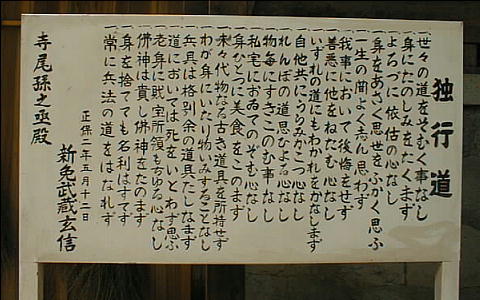 独行道
一世々の道をそむく事なし
一身にたのしみをたくまず
一よろづに依怙の心なし
一身をあさく思世をふかく思ふ
一生の間よくしん思わず
一我事において後悔をせず
一善悪に他をねたむ心なし
一いずれの道にもわかれをかなします
一自他共にうらみかこつ心なし
一れんぼの道思ひよる心なし
一物毎にすきこのむ事なし
一私宅においてのぞむ心なし
一身ひとつに美食をこのまず
一末々代物なる古き道具を所持せず
一わが身にいたり物いみすることなし
一兵具は格別余の道具たしなまず
一道においては死をいとわず思ふ
一老身に財宝所領もちゆる心なし
一佛神は貴し佛神をたのまず
一身を捨てても名利はすてず
一常に兵法の道をはなれず
正保二年五月十二日
新免武蔵玄信
寺尾孫之丞殿